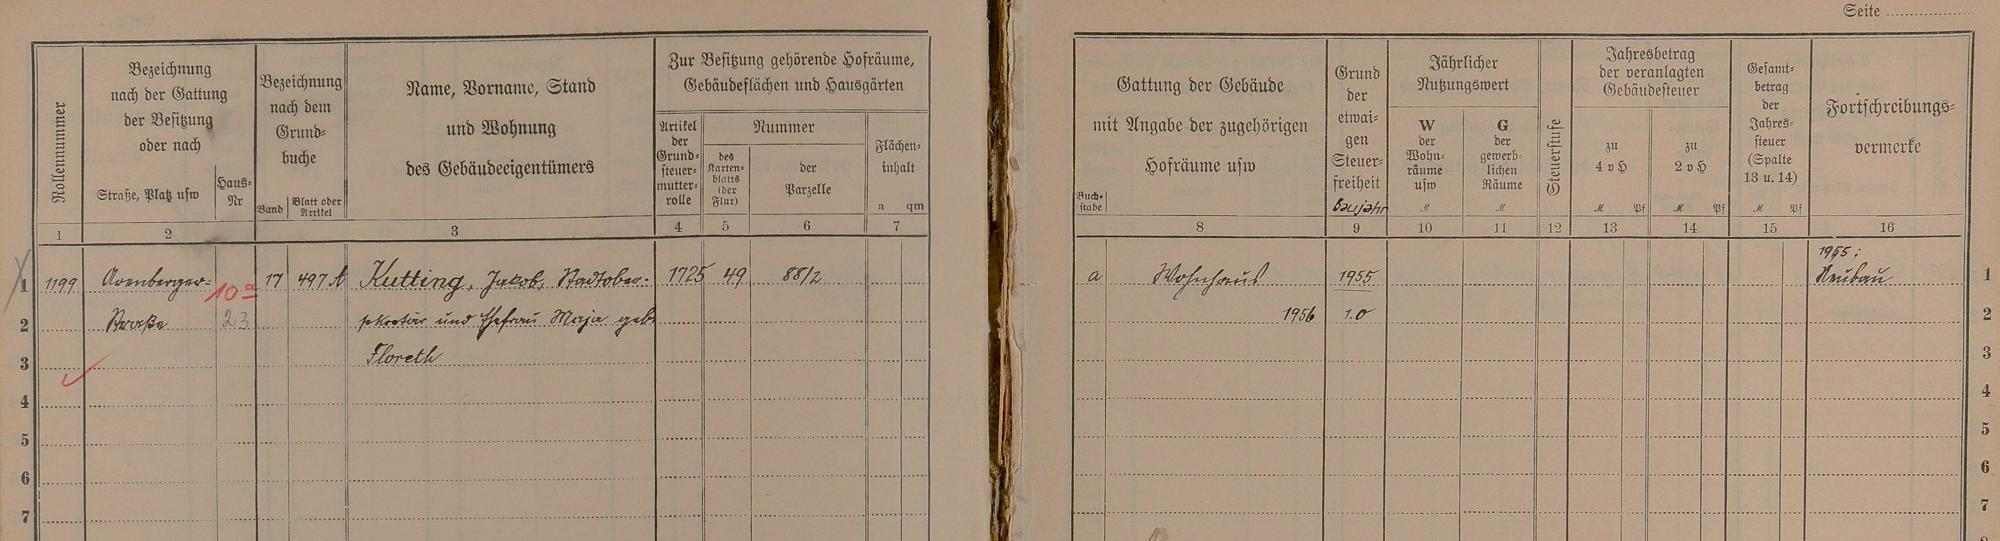 Seite
Rollennummer
Bezeichnung
nach der Gattung
der Besitzung
oder nach
Straße, Platz usw
Haus-
Nr
Bezeichnung
nach dem
Grund-
buche
Band
Blatt oder
Artikel
Name, Vorname, Stand
und Wohnung
des Gebäudeeigentümers
Zur Besitzung gehörende Hofräume,
Gebäudeflächen und Hausgärten
Artikel
der
Grund-
steuer-
mutter-
rolle
Nummer
des
Karten-
blatts
(der
Flur)
der
Parzelle
Flächen-
inhalt
a qm
1 2 3 4 5 6 7
1 1199 Arenberger- 10a 17 497 A Kutting, Jakob, Stadtober- 1725 49 88/2
2 Straße 23 sekretär und Ehefrau Maja geb.
3 Floreth
4
5
6
7
Gattung der Gebäude
mit Angabe der zugehörigen
Hofräume usw
Buch-
stabe
Grund
der
etwai-
gen
Steuer-
freiheit
Baujahr
Jährlicher
Nutzungswert
W
der
Wohn-
räume
usw
M
G
der
gewerb-
lichen
Räume
M
Steuerstufe
Jahresbetrag
der veranlagten
Gebäudesteuer
zu
4 v H
M Pf
zu
2 v H
M Pf
Gesamt-
betrag
der
Jahres-
steuer
(Spalte
13 u. 14)
M Pf
Fortschreibungs-
vermerke
8 9 10 11 12 13 14 15 16
1955;
a Wohnhaus 1955 Neubau 1
1956 1.0 2
3
4
5
6
7